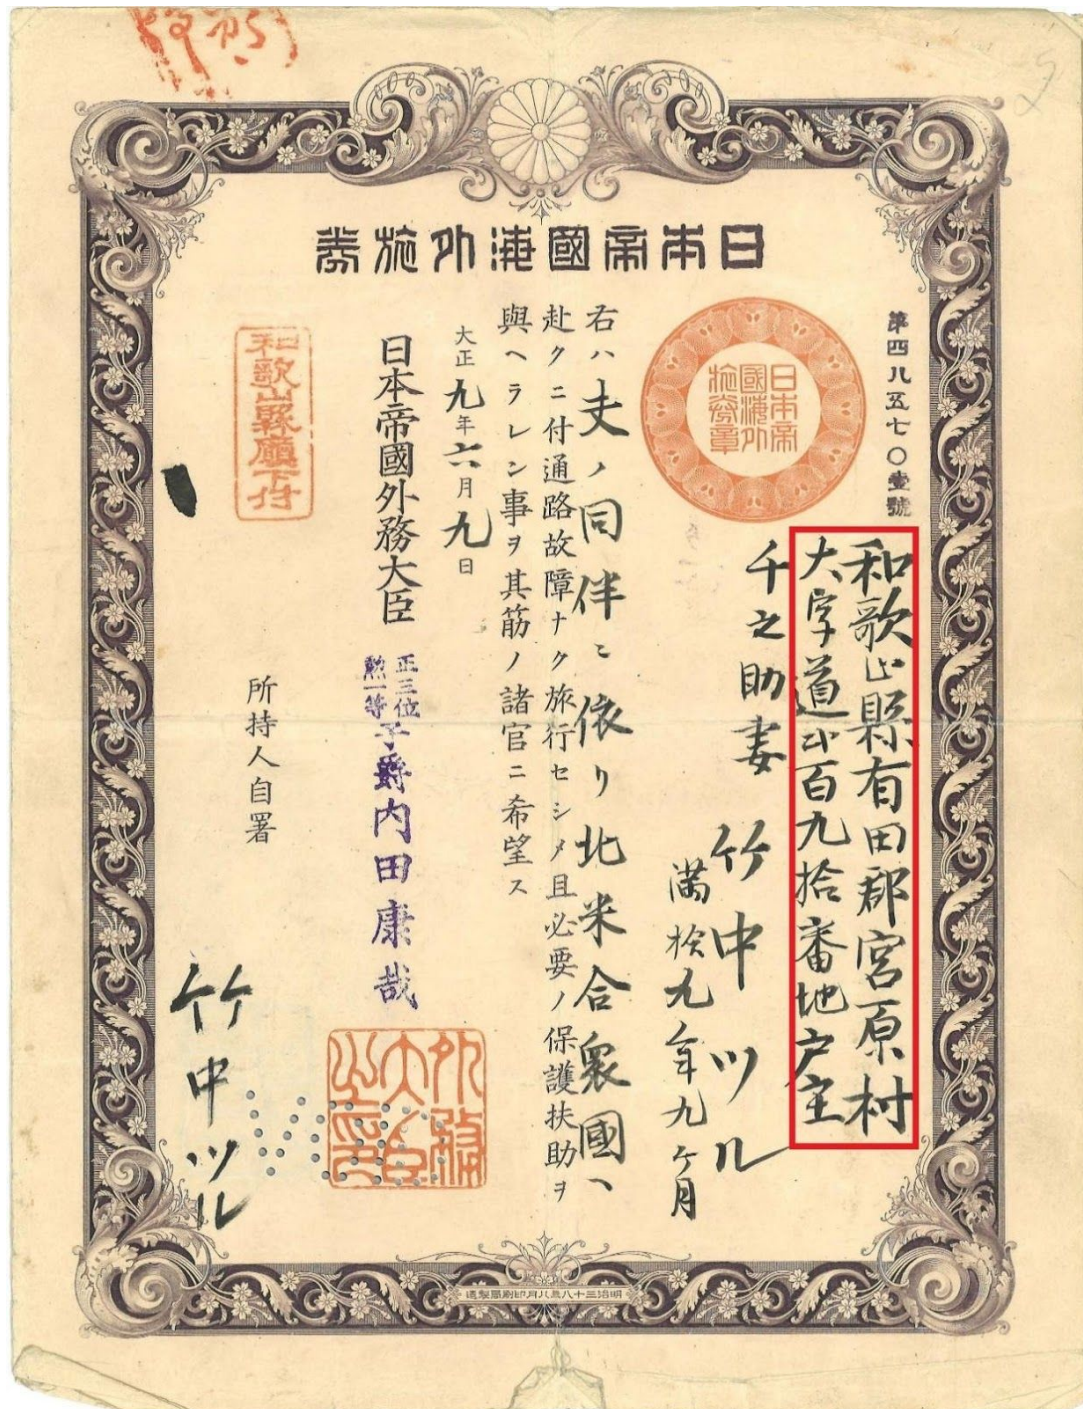 日本帝國海外旅券
第四八五七〇壹號
日本帝國海外旅券章
和歌山縣有田郡宮原村
大字道第百九拾番地戸主
千之助妻
竹中ツル
満拾九年九ケ月
右ハ夫ノ同伴ニ依リ北米合衆國ヘ
赴クニ付通路故障ナク旅行セシメ且必要ノ保護扶助ヲ
與ヘラレン事ヲ其筋ノ諸官ニ希望ス
大正九年六月九日
日本帝國外務大臣
正三位
勲一等
子爵内田康哉
外務大臣之印
和歌山縣廳下付
所持人自署
竹中ツル
明治三十八年八月印刷局製造